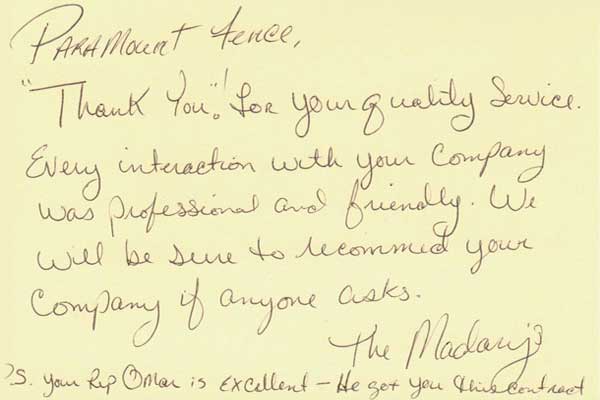 Paramount Fence,
"Thank You"! for your quality Service.
Every interaction with your Company
was professional and friendly. We
will be sure to recommed your
Company if anyone asks.
The
P.S. Your Rep Omar is Excellent - He got you this contract